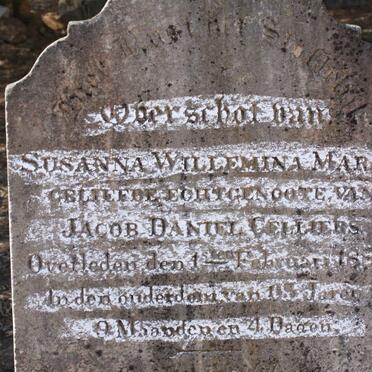 Hier Rust het Stoffelyk
Overschot van
SUSANNA WILLEMINA MAR
GELIEFDE ECHTGENOOTE VAN
JACOB DANIEL CELLIERS
Overleden den 1sten Februari 18
In den ouderdom van 63 Jaren
9 Maanden en 4 Dagen